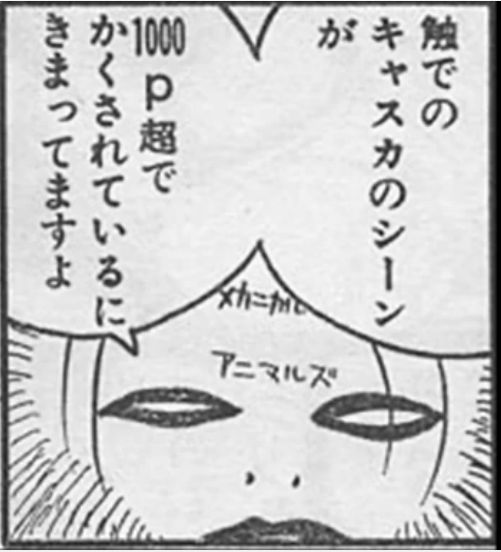 触での
キャスカのシーン
が
1000
p超で
かくされているに
きまってますよ
メカニカル
アニマルズ